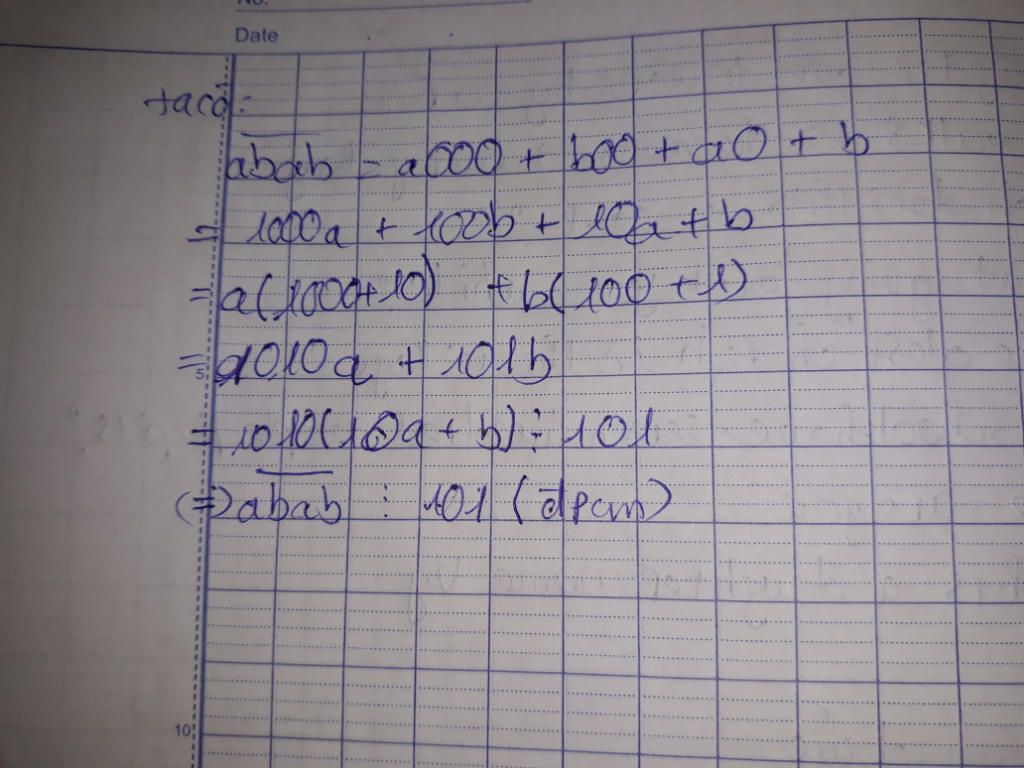 No.
Date
taco:
abab = a000 + b00 + a0 + b
= 1000a + 100b + 10a + b
= a(1000+10) + b(100 + 1)
= 1010a + 101b
5
= 1010(10a + b) ⋮ 101
(=) abab ⋮ 101 (đpcm)
10